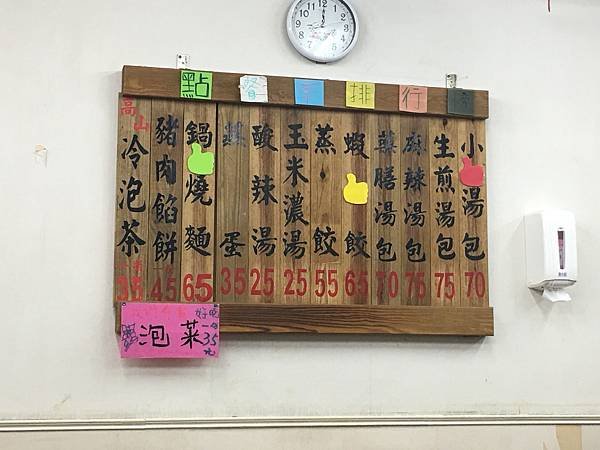 點餐手排行
小湯包 70
生煎湯包 75
麻辣湯包 76
藥膳湯包 70
蝦餃 65
蒸餃 55
玉米濃湯 25
酸辣湯 25
蛋 35
鍋燒麵 65
豬肉餡餅 45
高山冷泡茶 35
泡菜 35元